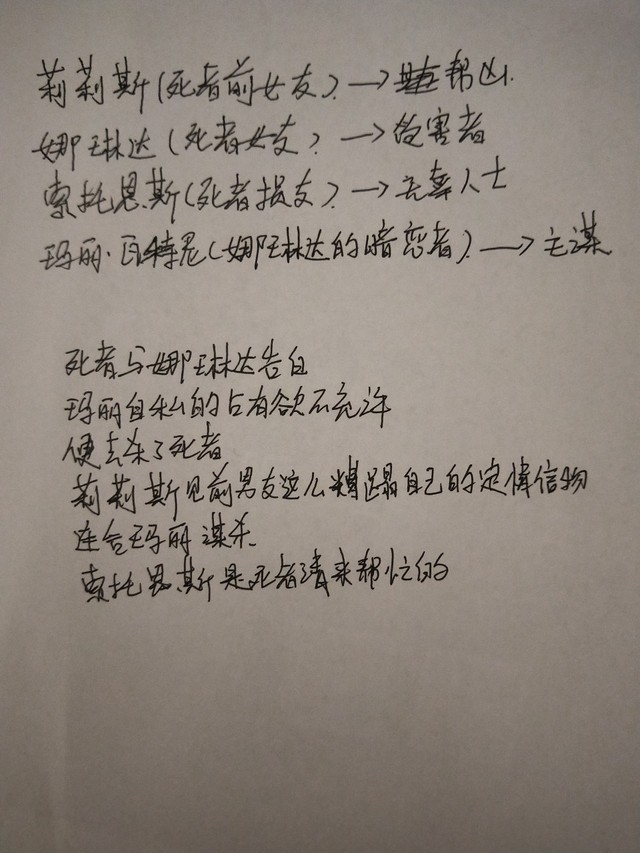 莉莉斯(死者前女友).→帮凶.
娜琳达(死者女友).→受害者
索托恩斯(死者损友).→无辜人士
玛丽·瓦特尼(娜琳达的暗恋者).→主谋
死者与娜琳达告白
玛丽自私的占有欲不允许
便去杀了死者
莉莉斯见前男友这么糟蹋自己的定情信物
连合玛丽谋杀.
索托恩斯是死者请来帮忙的